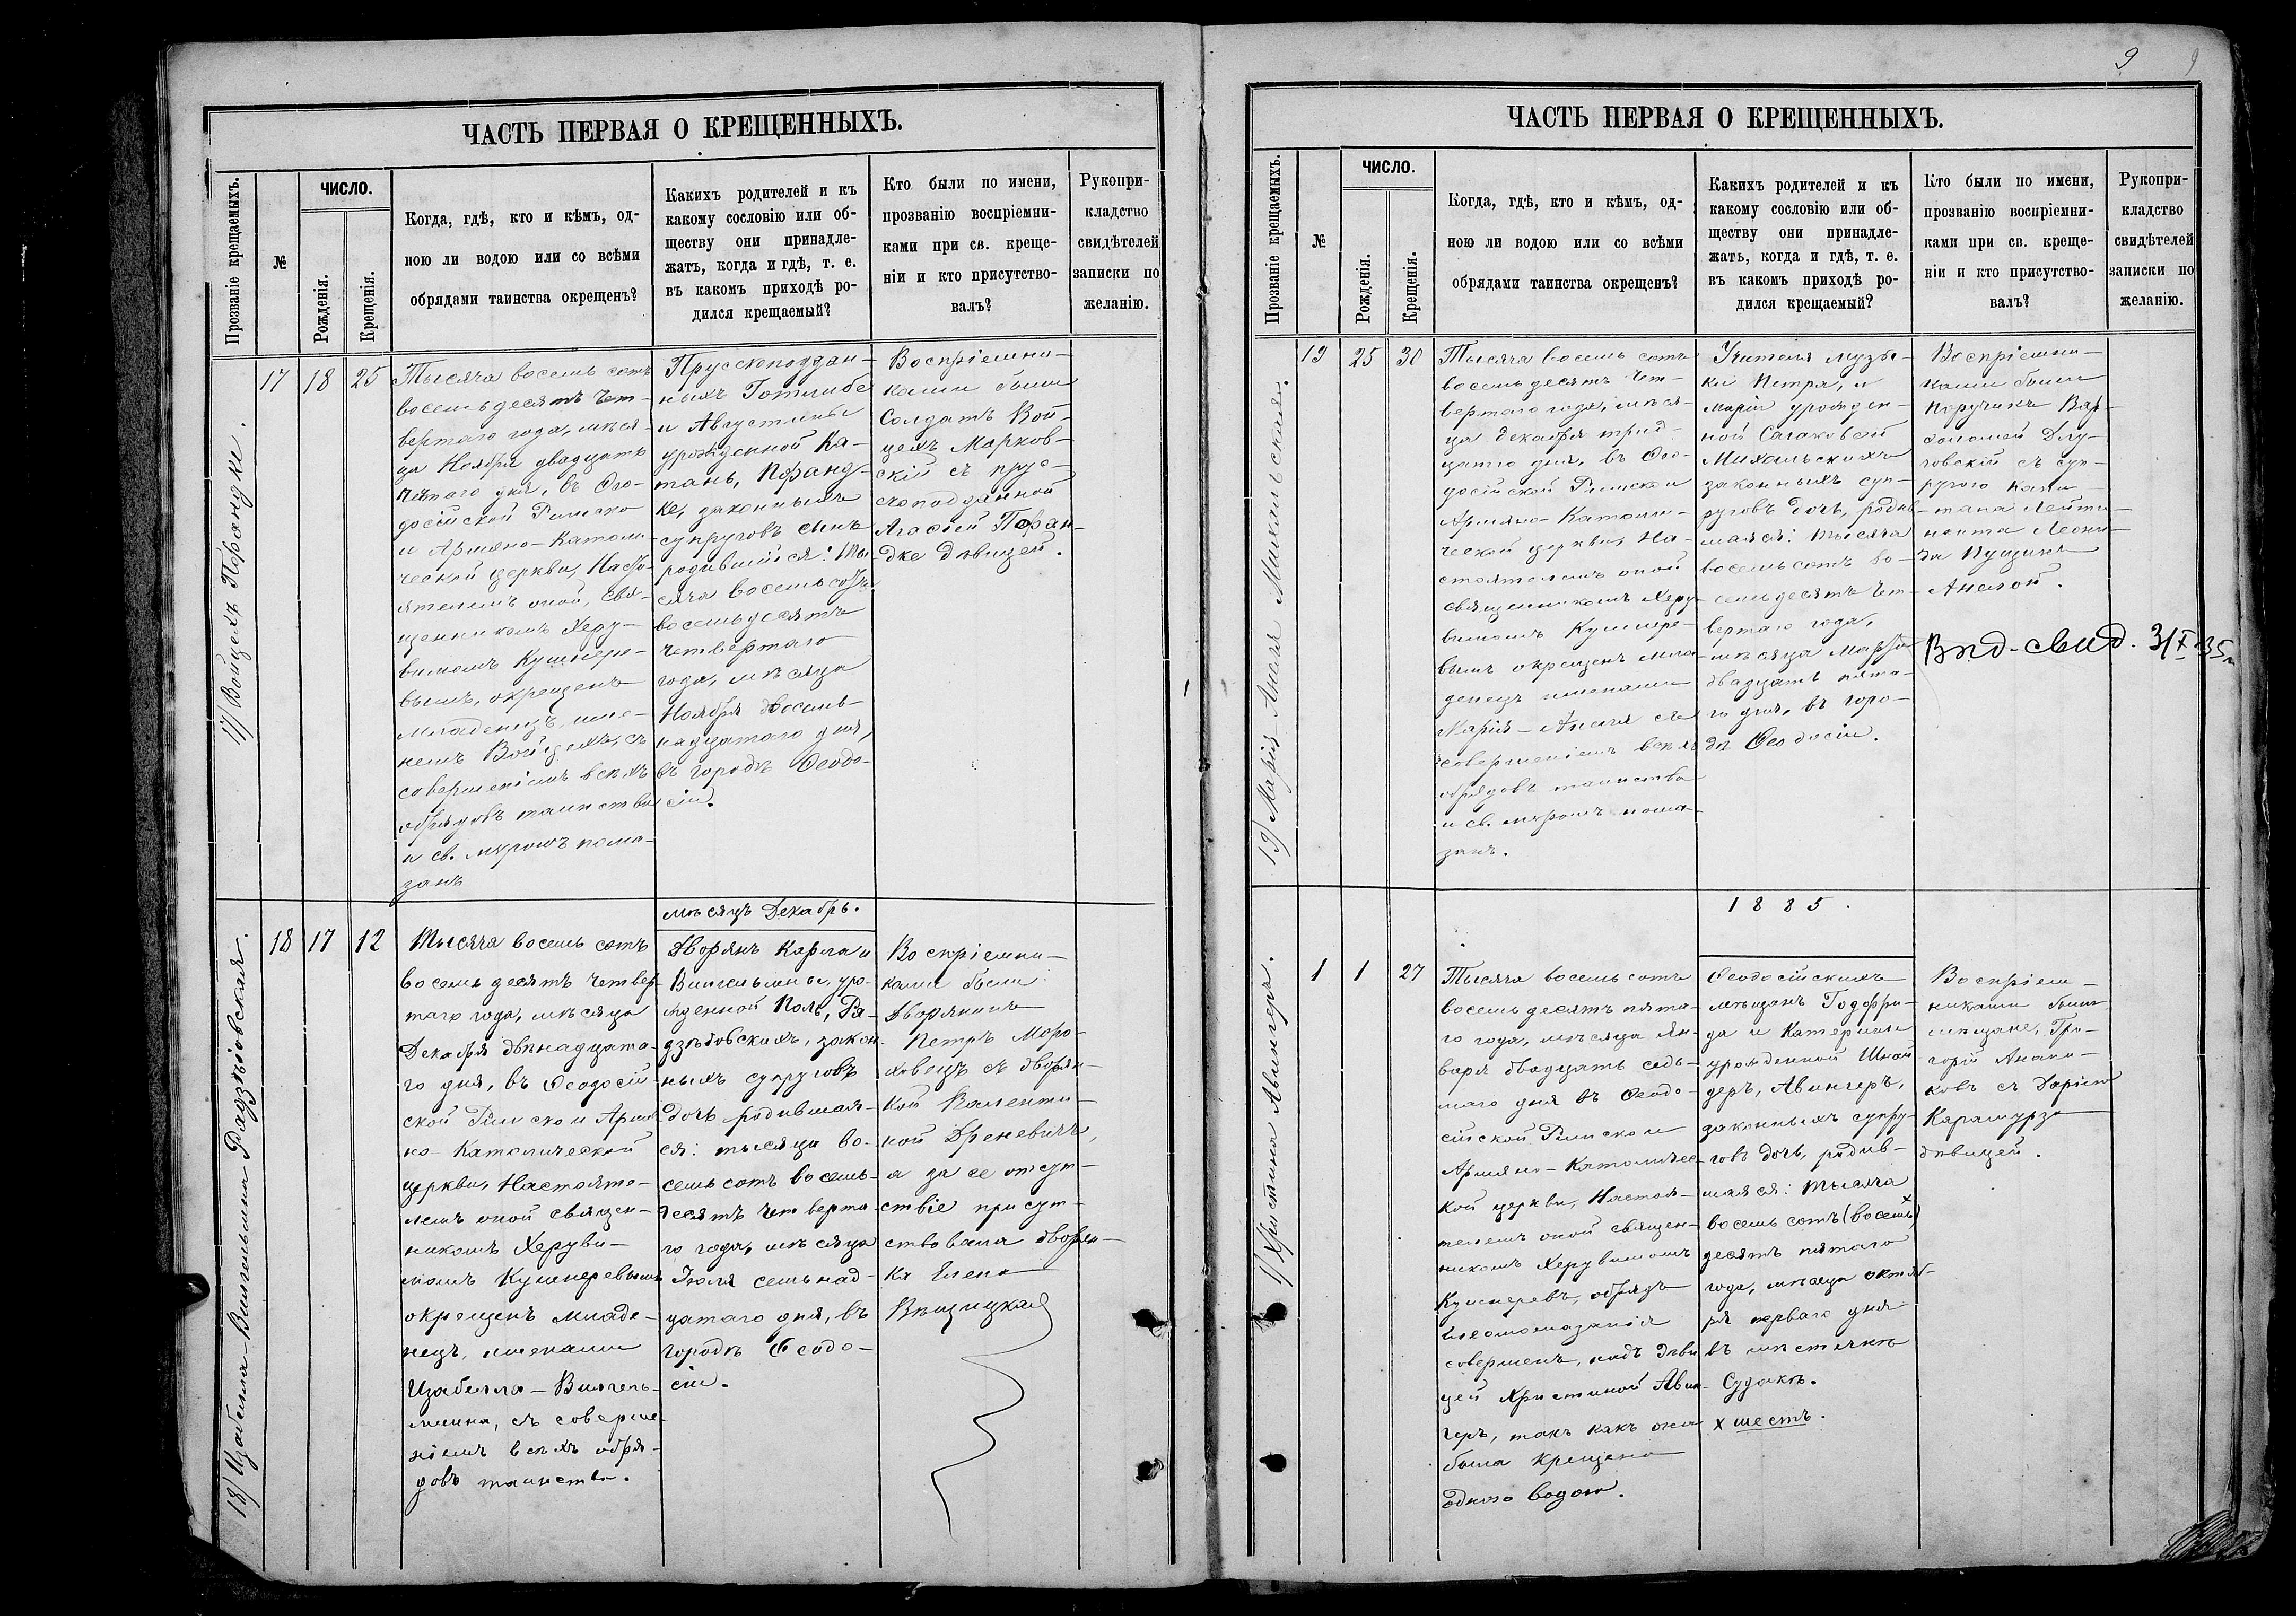 ЧАСТЬ ПЕРВАЯ О КРЕЩЕННЫХЪ.
Прозваніе крещаемыхъ.
№
ЧИСЛО.
Рожденія.
Крещенія.
Когда, гдѣ, кто и кѣмъ, од-
ною ли водою или со всѣми
обрядами таинства окрещенъ?
Какихъ родителей и къ
какому сословію или об-
ществу они принадле-
жатъ, когда и гдѣ, т. е.
въ какомъ приходѣ ро-
дился крещаемый?
Кто были по имени,
прозванію воспріемни-
ками при св. креще-
ніи и кто присутство-
валъ?
Рукопри-
кладство
свидѣтелей
записки по
желанію.
17) Войцехъ Пфандке.
17
18
25
Тысяча восемь сотъ
восемьдесятъ чет-
вертаго года, мѣся-
ца Ноября двадцать
пятаго дня, въ Ѳео-
досійской Римско
и Армяно-Католи-
ческой церкви, Насто-
ятелемъ оной, свя-
щенникомъ Херу-
вимомъ Кушнере-
вымъ, окрещенъ
младенецъ, име-
немъ Войцехъ, съ
совершеніемъ всѣхъ
обрядовъ таинства
и св. мѵромъ пома-
занъ
Прусскоподдан-
ныхъ Готлиба
и Августины
урожденной Ка-
тань, Пфанд-
ке, законныхъ
супруговъ сынъ
родившійся: ты-
сяча восемь сотъ
восемьдесятъ
четвертаго
года, мѣсяца
Ноября восем-
надцатаго дня,
въ городѣ Ѳеодо-
сіи.
Воспріемни-
ками были
Солдатъ Вой-
цехъ Марков-
скій съ прус-
скоподданной
Агафіей Пфан-
дке дѣвицей.
мѣсяцъ Декабрь.
18) Изабелла-Вильгельмина Радзѣіовская.
18
17
12
Тысяча восемь сотъ
восемьдесятъ четвер-
таго года, мѣсяца
Декабря двѣнадцата-
го дня, въ Ѳеодосій-
ской Римско и Армя-
но-Католической
церкви, Настояте-
лемъ оной священ-
никомъ Херуви-
момъ Кушнеревымъ
окрещенъ младе-
нецъ, именами
Изабелла-Вильгель-
мина, съ соверше-
ніемъ всѣхъ обря-
довъ таинства.
Дворянъ Карла и
Вильгельмины уро-
жденной Поль, Ра-
дзѣіовскихъ, закон-
ныхъ супруговъ
дочь родившая-
ся: тысяча во-
семь сотъ восемь-
десятъ четверта-
го года, мѣсяца
Іюля семнад-
цатаго дня, въ
городѣ Ѳеодо-
сіи.
Воспріемни-
ками были
дворянинъ
Петръ Моро-
ховецъ съ дворян-
кой Валенти-
ной Дреневичъ,
а за ее отсут-
ствіе присут-
ствовала дворян-
ка Елена
9
ЧАСТЬ ПЕРВАЯ О КРЕЩЕННЫХЪ.
Прозваніе крещаемыхъ.
№
ЧИСЛО.
Рожденія.
Крещенія.
Когда, гдѣ, кто и кѣмъ, од-
ною ли водою или со всѣми
обрядами таинства окрещенъ?
Какихъ родителей и къ
какому сословію или об-
ществу они принадле-
жатъ, когда и гдѣ, т. е.
въ какомъ приходѣ ро-
дился крещаемый?
Кто были по имени,
прозванію воспріемни-
ками при св. креще-
ніи и кто присутство-
валъ?
Рукопри-
кладство
свидѣтелей
записки по
желанію.
19) Марія Анеля Михальская.
19
25
30
Тысяча восемь сотъ
восемьдесятъ чет-
вертаго года, мѣся-
ца декабря трид-
цатго дня, въ Ѳео-
досійской Римско и
Армяно-Католи-
ческой церкви, На-
стоятелемъ оной
священникомъ Херу-
вимомъ Кушнере-
вымъ окрещенъ мла-
денецъ именами
Марія-Анеля съ
совершеніемъ всѣхъ
обрядовъ таинства
и св. мѵромъ пома-
занъ.
Учителя музы-
ки Петра, и
Маріи урожден-
ной Сагаковой
Михальскихъ
законныхъ суп-
руговъ дочь, родив-
шаяся: тысяча
восемь сотъ во-
семьдесятъ чет-
вертаго года,
мѣсяца Марта
двадцать пята-
го дня, въ горо-
дѣ Ѳеодосіи.
Воспріемни-
ками были
Поручикъ Вар-
ѳоломей Длу-
говскій съ суп-
ругою Капи-
тана Лейте-
нанта Леони-
да Пущинъ
Анелой.
Выд-свид. 3/X 35
1885.
1) Христина Авингеръ.
1
1
27
Тысяча восемь сотъ
восемьдесятъ пята-
го года, мѣсяца Ян-
варя двадцать седь-
маго дня въ Ѳеодо-
сійской Римско и
Армяно-Католичес-
кой церкви, Настоя-
телемъ оной священ-
никомъ Херувимомъ
Кушнеревъ, обрядъ
елеопомазанія
совершенъ, надъ дѣви-
цей Христиной Авин-
геръ, такъ какъ она
была крещена
одною водою.
Ѳеодосійскихъ
мѣщанъ Годфри-
да и Катерины
урожденной Шней-
деръ, Авингеръ,
законныхъ супру-
говъ дочь, родив-
шаяся: тысяча
восемь сотъ (восемь) х
десятъ пятаго
года, мѣсяца октяб-
ря перваго дня
въ мѣстечкѣ
Судакъ.
х шестъ.
Воспріем-
никами были
мѣщане, Гри-
горій Анани-
ковъ съ Даріею
Карамурза
дѣвицей.